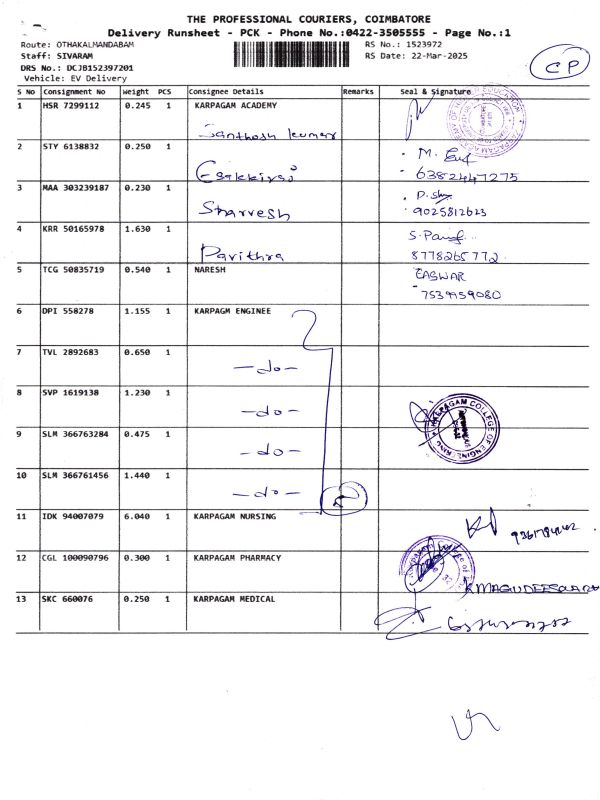 THE PROFESSIONAL COURIERS, COIMBATORE
Delivery Runsheet - PCK - Phone No.:0422-3505555 - Page No.:1
Route: OTHAKALMANDABAM
RS No.: 1523972
Staff: SIVARAM
RS Date: 22-Mar-2025
DRS No.: DCJB152397201
Vehicle: EV Delivery
CP
S No Consignment No Weight PCS Consignee Details Remarks Seal & Signature
1 HSR 7299112 0.245 1 KARPAGAM ACADEMY
Santhosh kumar
2 STY 6138832 0.250 1
Esakkiyal M.
6382447275
3 MAA 303239187 0.230 1
Sharvesh
9025812623
4 KRR 50165978 1.630 1
Pavithra
8778265772
5 TCG 50835719 0.540 1 NARESH EASWAR
7539959080
6 DPI 558278 1.155 1 KARPAGM ENGINEE
7 TVL 2892683 0.650 1
-do-
8 SVP 1619138 1.230 1
-do-
KARPAGAM COLLEGE OF ENGINEERING
9 SLM 366763284 0.475 1
-do-
10 SLM 366761456 1.440 1
-do- 5
11 IDK 94007079 6.040 1 KARPAGAM NURSING
12 CGL 100090796 0.300 1 KARPAGAM PHARMACY
13 SKC 660076 0.250 1 KARPAGAM MEDICAL